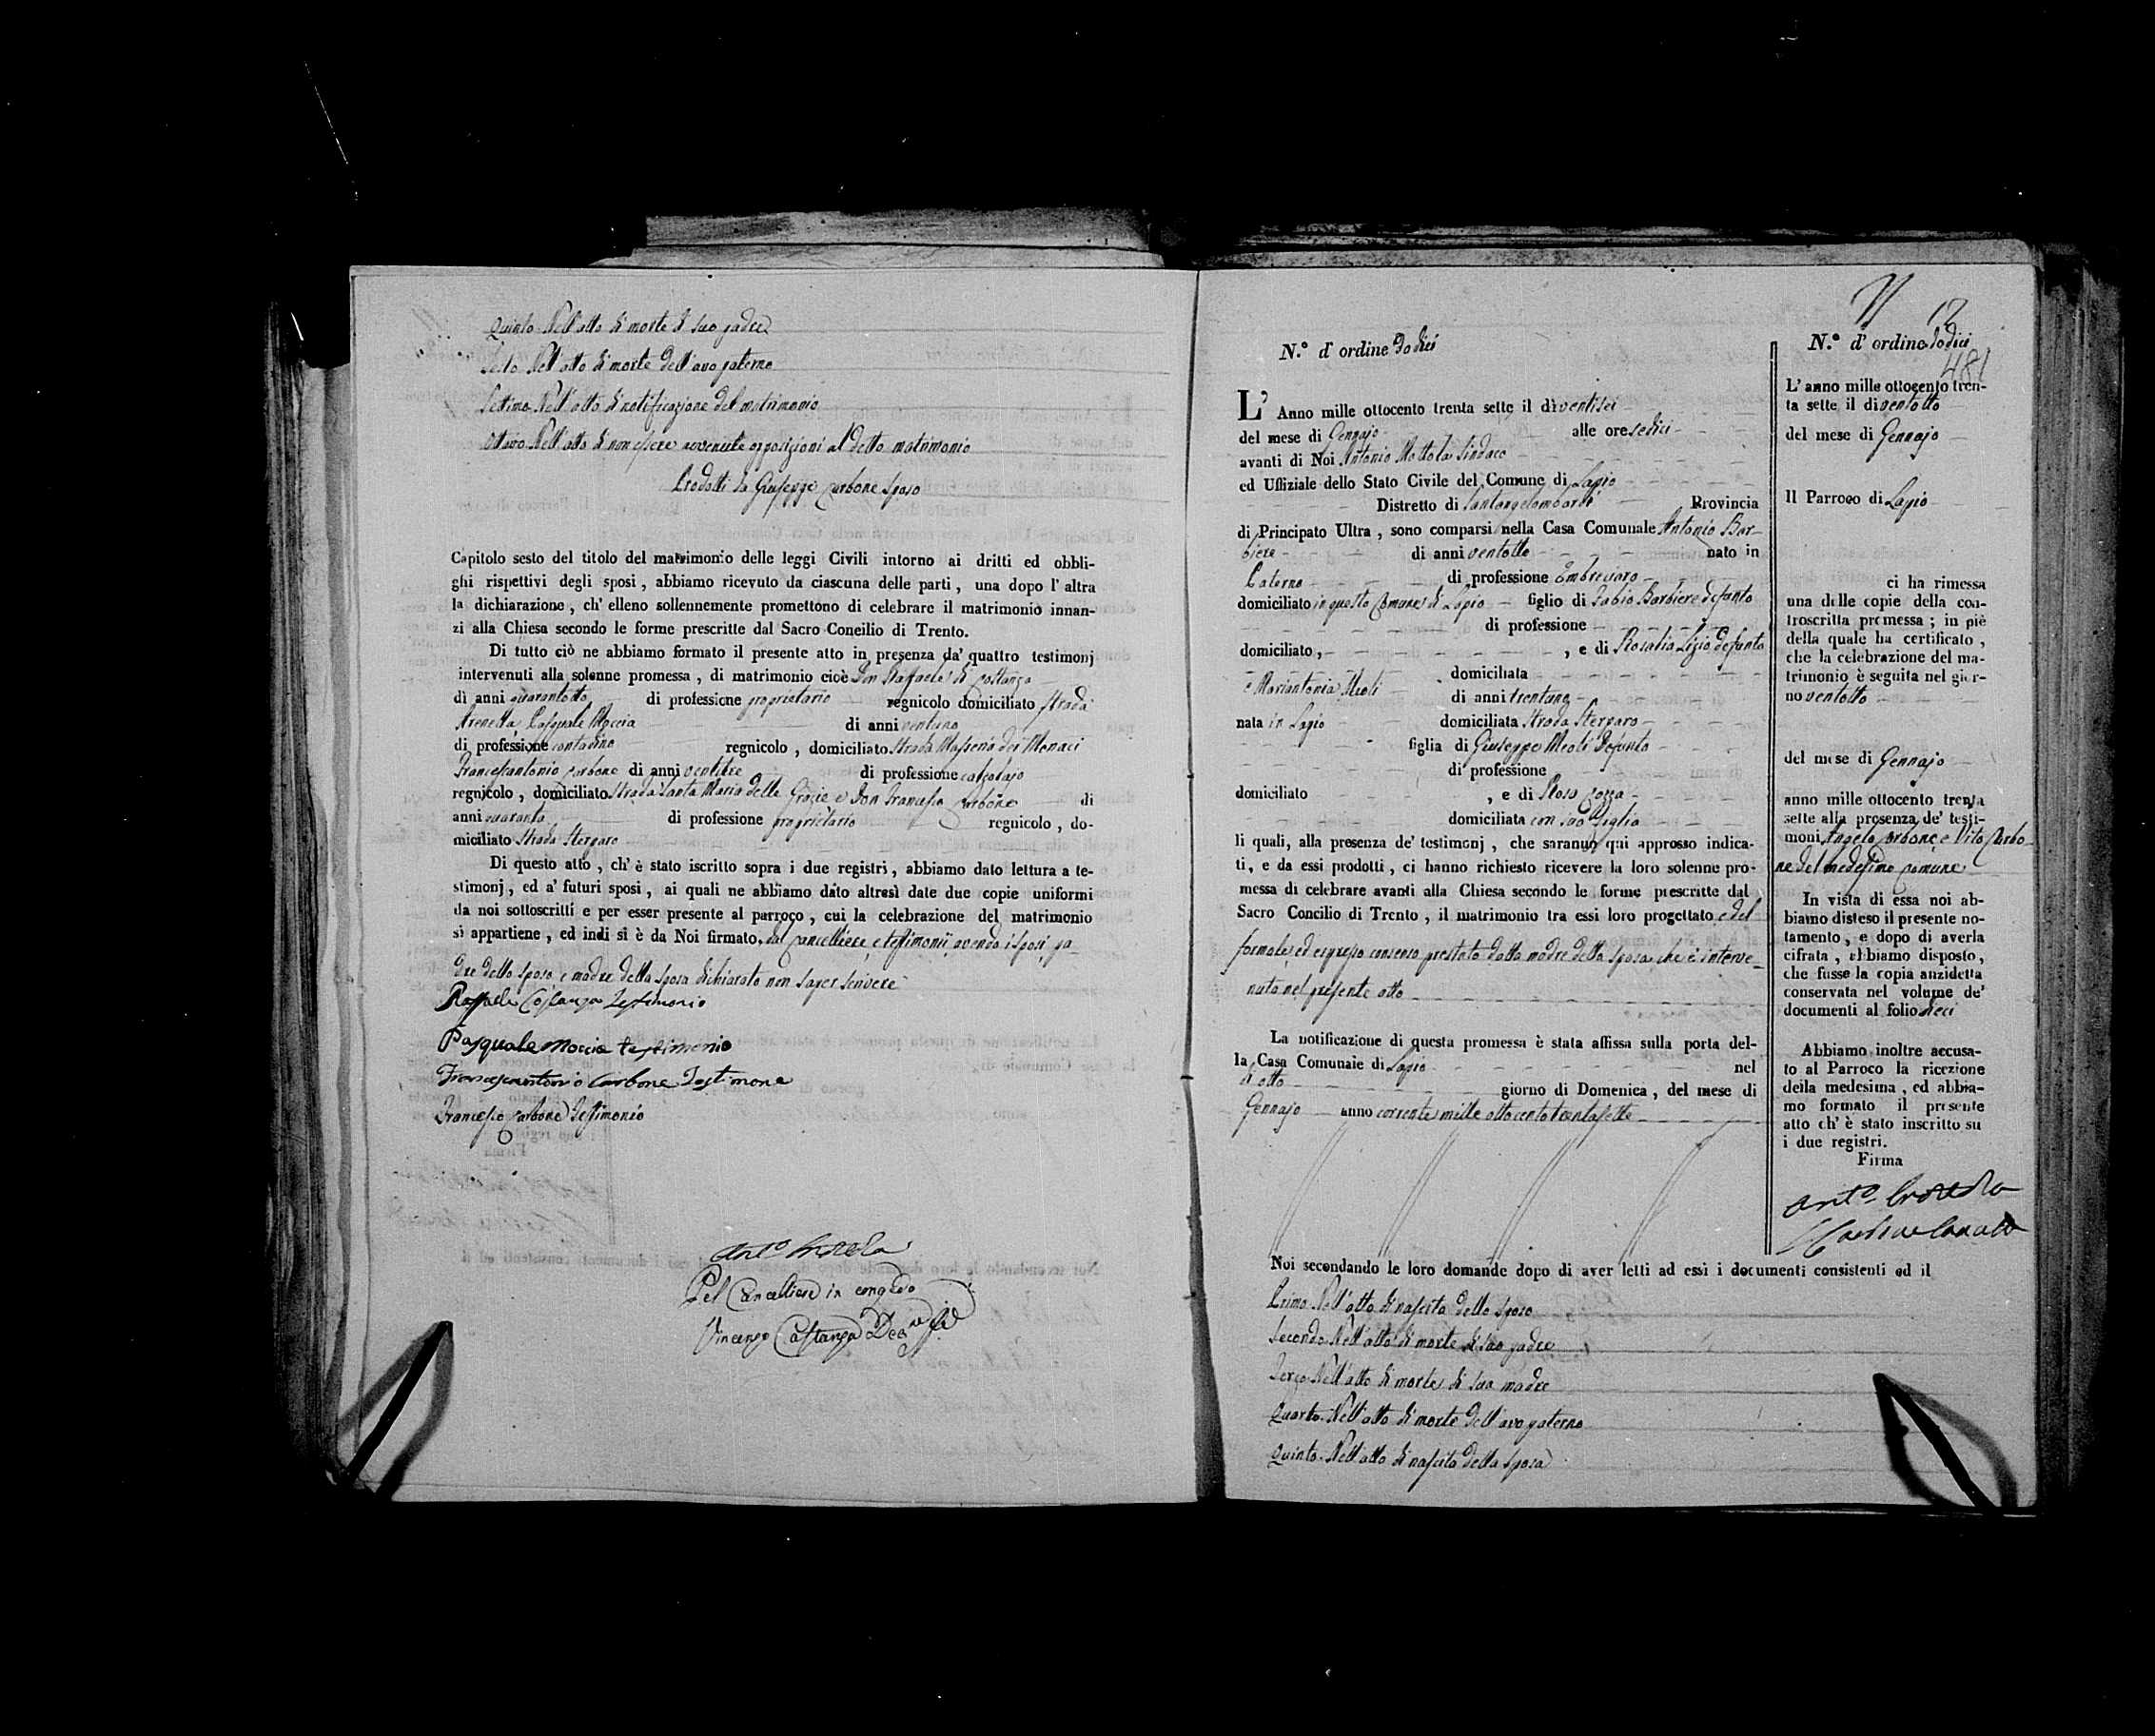 Quinto. Nell'atto di morte di suo padre
Sesto Nell'atto di morte dell'avo paterno
Settimo. Nell'atto di notificazione del matrimonio
Ottavo. Nell'atto di non essere avvenute opposizioni al detto matrimonio
Prodotti da Giuseppe Carbone sposo
Capitolo sesto del titolo del matrimonio delle leggi Civili intorno ai dritti ed obbli-
ghi rispettivi degli sposi, abbiamo ricevuto da ciascuna delle parti, una dopo l'altra
la dichiarazione, ch'elleno sollennemente promettono di celebrare il matrimonio innan-
zi alla Chiesa secondo le forme prescritte dal Sacro Concilio di Trento.
Di tutto ciò ne abbiamo formato il presente atto in presenza da' quattro testimonj
intervenuti alla solenne promessa, di matrimonio cioè Don Raffaele di Costanza
di anni quarantotto di professione proprietario regnicolo domiciliato Strada
Arenella, Pasquale Moccia di anni ventuno
di professione contadino regnicolo, domiciliato Strada Masseria dei Monaci
Francescantonio Carbone di anni ventitre di professione calzolajo
regnicolo, domiciliato Strada Santa Maria delle Grazie e Don Francesco Carbone di
anni quaranta di professione proprietario regnicolo, do-
miciliato Strada Stergaro
Di questo atto, ch'è stato iscritto sopra i due registri, abbiamo dato lettura a te-
stimonj, ed a' futuri sposi, ai quali ne abbiamo dato altresì date due copie uniformi
da noi sottoscritti e per esser presente al parroco, cui la celebrazione del matrimonio
si appartiene, ed indi si è da Noi firmato, dal Cancelliere, e testimonii avendo i sposi, pa-
dre dello sposo, e madre della sposa dichiarato non saper scrivere
Raffaele Costanza Testimonio
Pasquale Moccia testimonio
Francescantonio Carbone Testimone
Francesco Carbone Testimonio
Pel Cancelliere in congedo
Vincenzo Costanza
N.° d'ordine dodici
L'Anno mille ottocento trenta sette il dì ventisei
del mese di Gennajo alle ore sedici
avanti di Noi Antonio Mottola Sindaco
ed Uffiziale dello Stato Civile del Comune di Lapio
Distretto di Santangelombardi Provincia
di Principato Ultra, sono comparsi nella Casa Comunale Antonio Bar-
biere di anni ventotto nato in
Paterno di professione
domiciliato in questo Comune di Lapio figlio di Fabio Barbiere defunto
di professione
domiciliato, , e di Rosalia Lizio defunta
domiciliata
e Mariantonia Meoli di anni trentuno
nata in Lapio domiciliata Strada Stergaro
figlia di Giuseppe Meoli defunto
di professione
domiciliato , e di Rosa Cozza
domiciliata con sua figlia
li quali, alla presenza de' testimonj, che saranno qui appresso indica-
ti, e da essi prodotti, ci hanno richiesto ricevere la loro solenne pro-
messa di celebrare avanti alla Chiesa secondo le forme prescritte dal
Sacro Concilio di Trento, il matrimonio tra essi loro progettato e del
formale, ed espresso consenso prestato dalla madre della sposa che è interve-
nuta nel presente atto
La notificazione di questa promessa è stata affissa sulla porta del-
la Casa Comunale di Lapio nel
dì otto giorno di Domenica, del mese di
Gennajo anno corrente mille ottocento trentasette
Noi secondando le loro domande dopo di aver letti ad essi i documenti consistenti ed il
Primo. Nell'atto di nascita dello sposo
Secondo. Nell'atto di morte di suo padre
Terzo. Nell'atto di morte di sua madre
Quarto. Nell'atto di morte dell'avo paterno
Quinto. Nell'atto di nascita della sposa
12
N.° d'ordine dodici
481
L'anno mille ottocento tren-
ta sette il dì ventotto
del mese di Gennajo
Il Parroco di Lapio
ci ha rimessa
una delle copie della con-
troscritta promessa; in piè
della quale ha certificato,
che la celebrazione del ma-
trimonio è seguita nel gior-
no ventotto
del mese di Gennajo
anno mille ottocento trenta
sette alla presenza de' testi-
moni Angelo Carbone, e Vito Carbo-
ne del medesimo Comune
In vista di essa noi ab-
biamo disteso il presente no-
tamento, e dopo di averla
cifrata, abbiamo disposto,
che fusse la copia anzidetta
conservata nel volume de'
documenti al folio dieci
Abbiamo inoltre accusa-
to al Parroco la ricezione
della medesima, ed abbia-
mo formato il presente
atto ch'è stato inscritto su
i due registri.
Firma